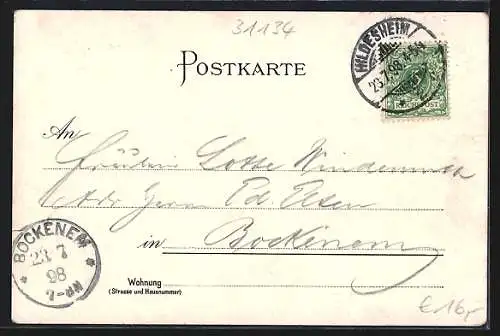 31134
POSTKARTE
HILDESHEIM
23.7.98.
REICHSPOST
An
Fräulein Lotte Windemuth
Adr Herrn Ed. Elsen
in Bockenem
BOCKENEM
23 7
98
7-8N
Wohnung
(Strasse und Hausnummer)
€16,-